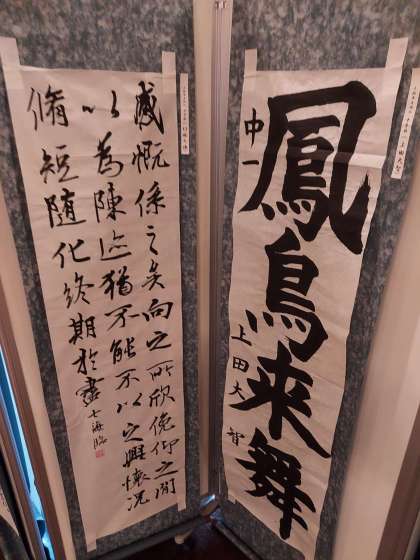 鳳鳥来舞
中一 上田大智
感慨係之矣向之所欣俛仰之間
以為陳迹猶不能不以之興懷況
脩短随化終期於盡 七海臨